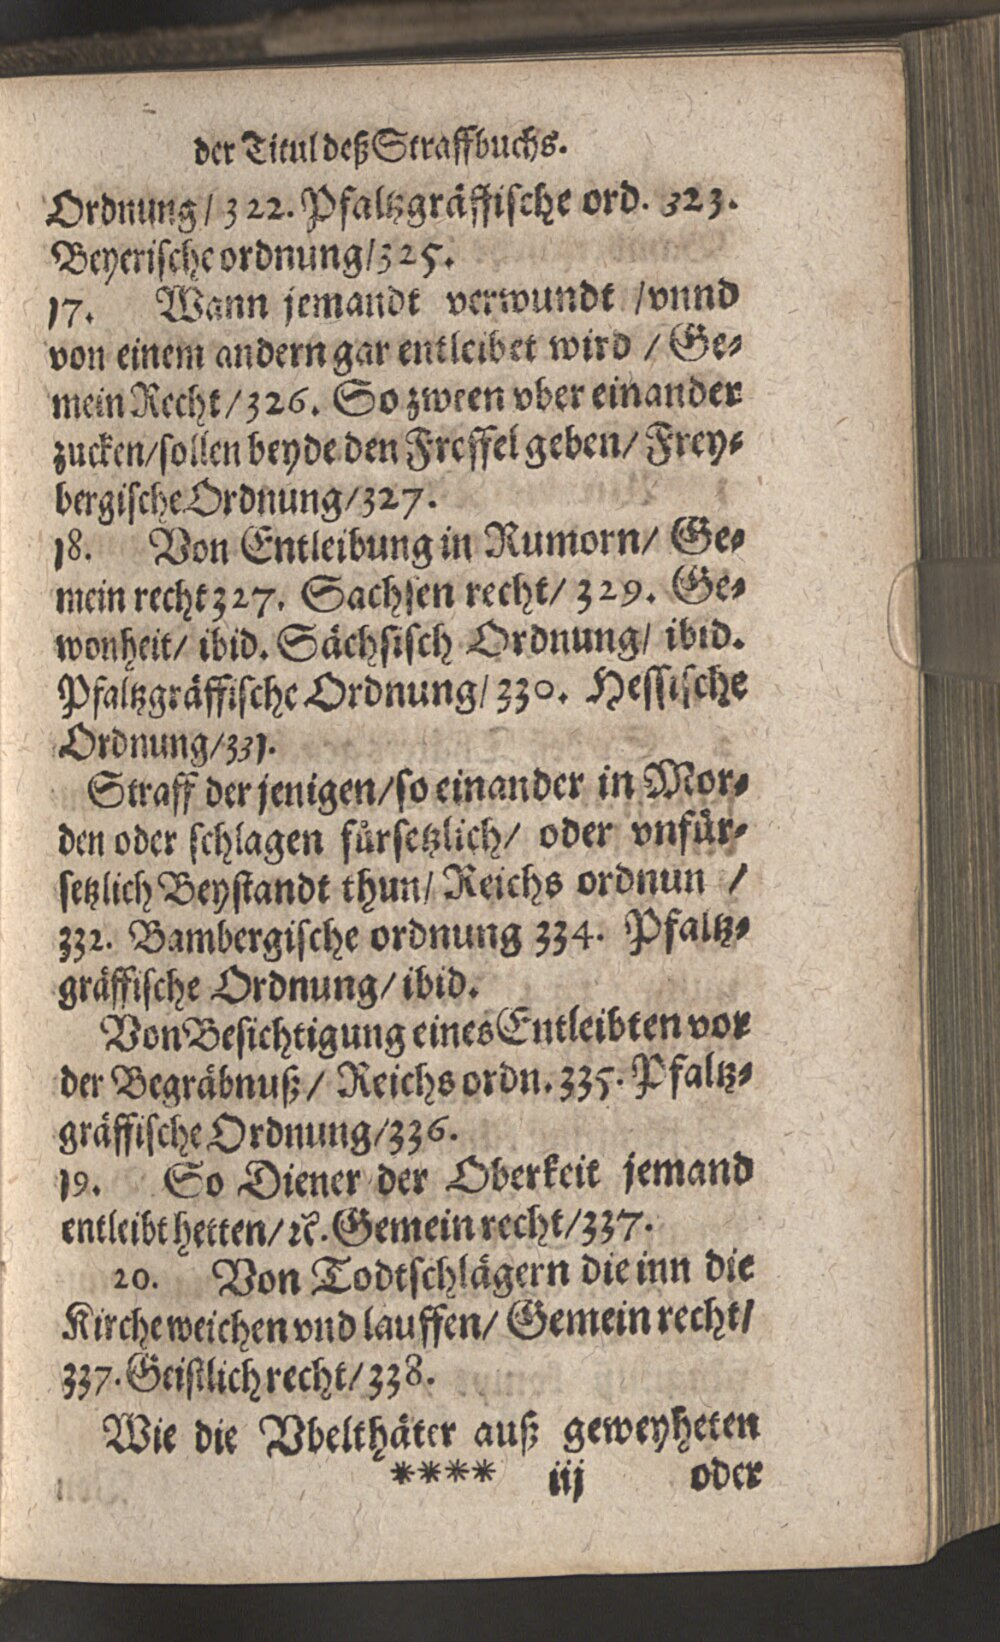 der Titul deß Straffbuchs.
Ordnung / 322. Pfaltzgräffische ord. 323.
Beyerische ordnung / 325.
17. Wann jemandt verwundt / vnnd
von einem andern gar entleibet wird / Ge-
mein Recht / 326. So zween vber einander
zucken / sollen beyde den Freffel geben / Frey-
bergische Ordnung / 327.
18. Von Entleibung in Rumorn / Ge-
mein recht 327. Sachsen recht / 329. Ge-
wonheit / ibid. Sächsisch Ordnung / ibid.
Pfaltzgräffische Ordnung / 330. Hessische
Ordnung / 331.
Straff der jenigen / so einander in Mor-
den oder schlagen fürsetzlich / oder vnfür-
setzlich Beystandt thun / Reichs ordnun /
332. Bambergische ordnung 334. Pfaltz-
gräffische Ordnung / ibid.
Von Besichtigung eines Entleibten vor
der Begräbnuß / Reichs ordn. 335. Pfaltz-
gräffische Ordnung / 336.
19. So Diener der Oberkeit jemand
entleibt hetten / ꝛc. Gemein recht / 337.
20. Von Todtschlägern die inn die
Kirche weichen vnd lauffen / Gemein recht /
337. Geistlich recht / 338.
Wie die Vbelthäter auß geweyheten
**** iij oder